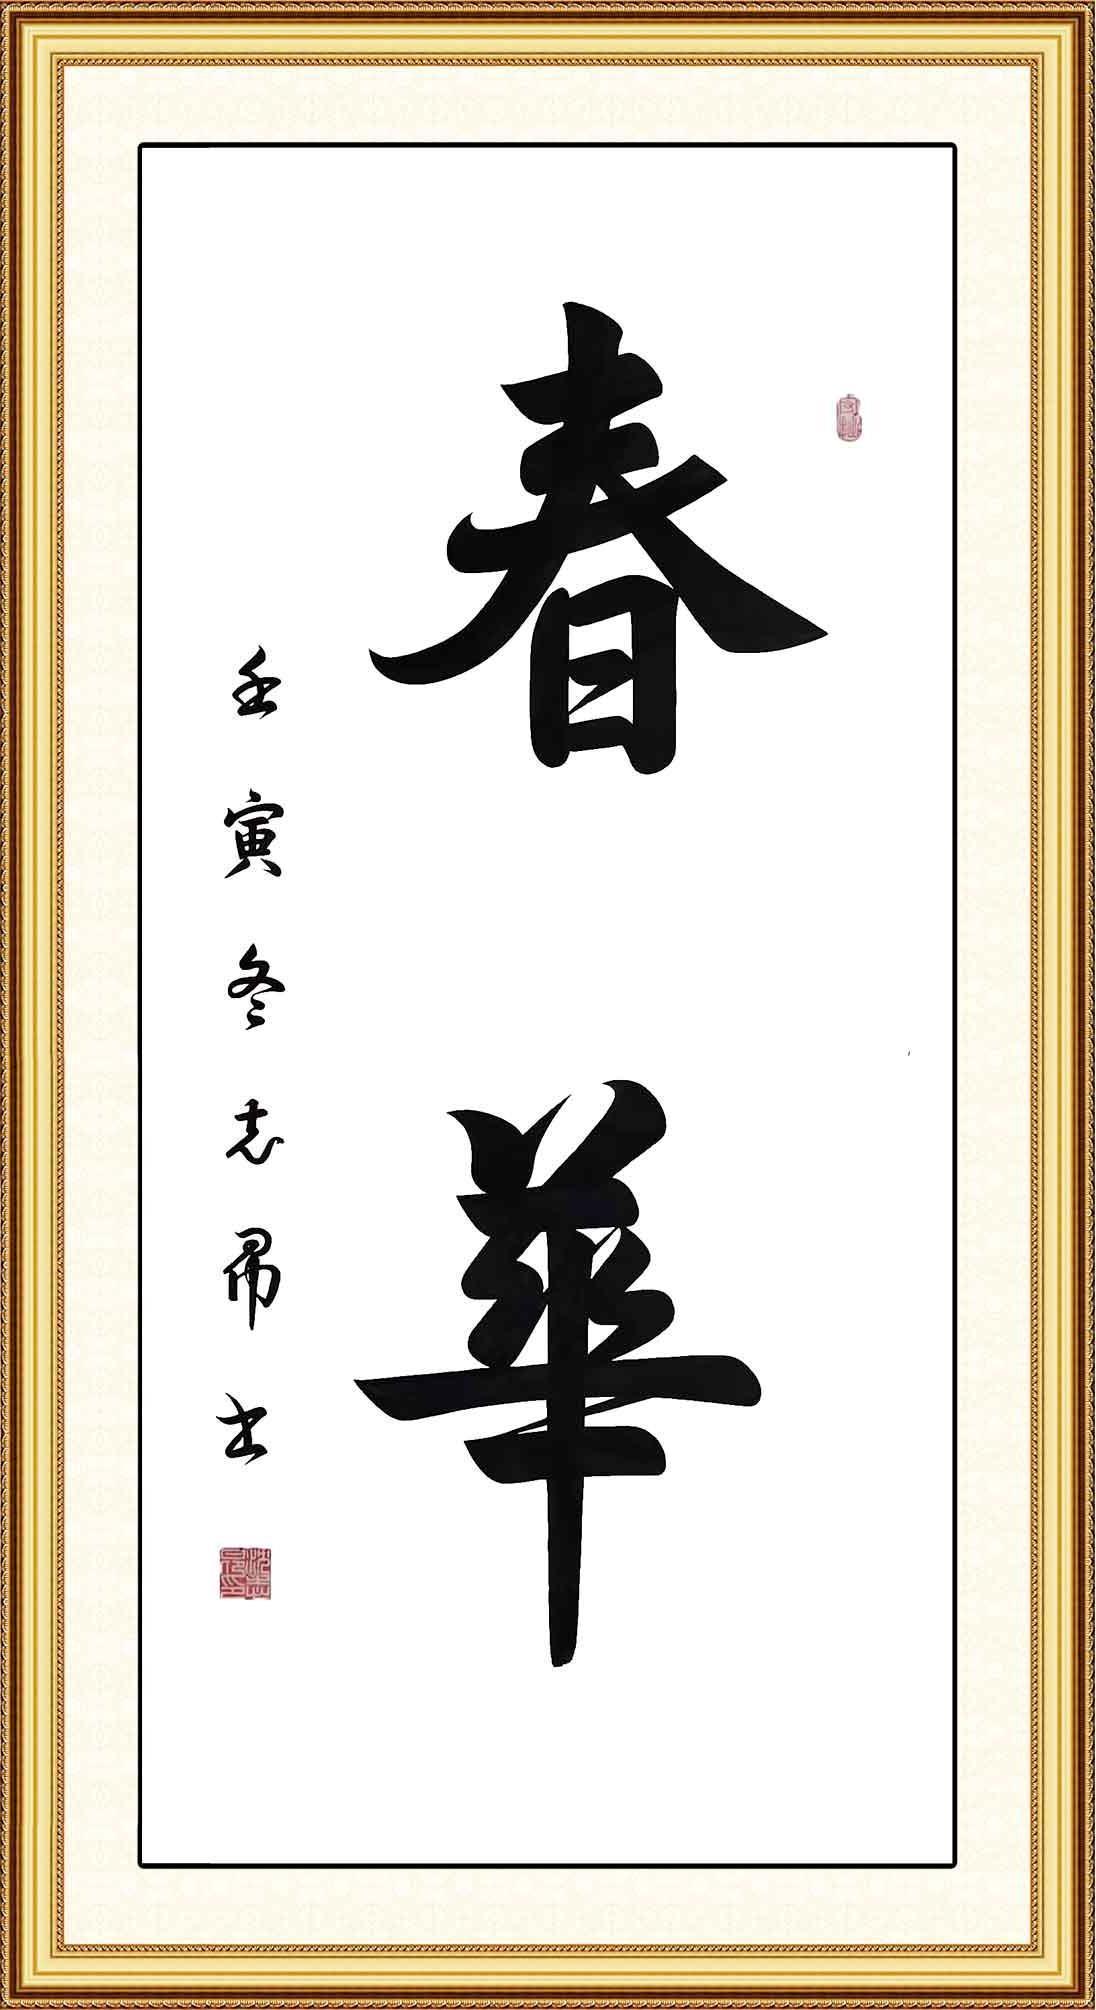 春華
壬寅冬志昂书